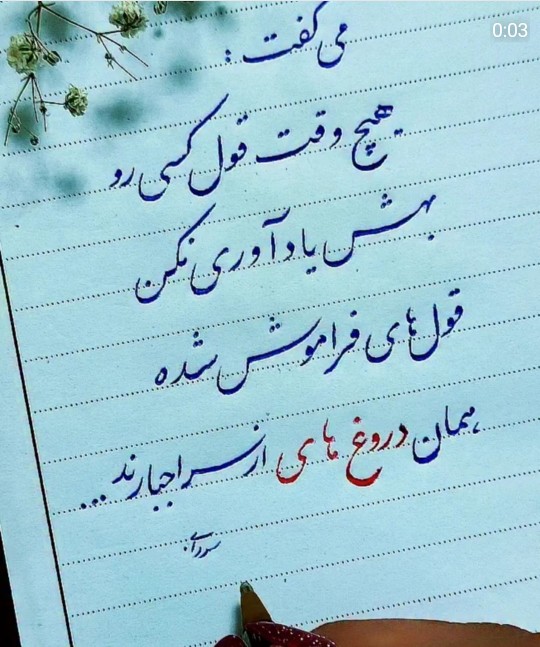 0:03
می گفت :
هیچ وقت قول کسی رو
بهش یادآوری نکن
قول های فراموش شده
همان دروغ های از سر اجبارند...